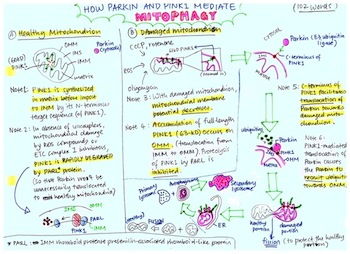 HOW PARKIN AND PINK1 MEDIATE
MITOPHAGY
(102 words)
(A) Healthy Mitochondrion
OMM
IMS
IMM
matrix
Parkin
(cytosolic)
PINK1
Note 1: PINK1 is synthesized
in matrix before import
to IMM by its N-terminus
target sequence (of PINK1).
Note 2: In absence of uncouplers,
mitochondrial damage
by ROS compound or
ETC complex inhibitors,
PINK1 is RAPIDLY DEGRADED
by PARL* protein
(so that Parkin won't be
unnecessarily translocated
to healthy mitochondria)
OMM
IMS
PARL
IMM
PINK1
* PARL ⇒ IMM rhomboid protease presenilin-associated rhomboid-like protein
(B) Damaged mitochondrion
CCCP, rotenone
Oligomycin
Note 3: With damaged mitochondrion,
mitochondrial membrane
potential decreases.
Note 4: Accumulation of full length
PINK1 (63-kD) occurs on
OMM (translocation from
IMM to OMM). Proteolysis
of PINK1 by PARL is
inhibited.
CYTOSOL
Parkin (E3 ubiquitin
ligase)
C-terminus of
PINK1
Note 5: C-terminus of
PINK1 facilitates
translocation of
Parkin towards
damaged mito-
chondrion.
ubiquitin
Parkin
PINK1
OMM
Note 6:
PINK1-mediated
translocation of
Parkin causes
the Parkin to
recruit ubiquitin
towards OMM.
Primary lysosome
Autophagosome
Secondary
lysosome
ER
(healthy)
Fusion
healthy
portion
damaged
portion
fission (to protect the healthy
portion)